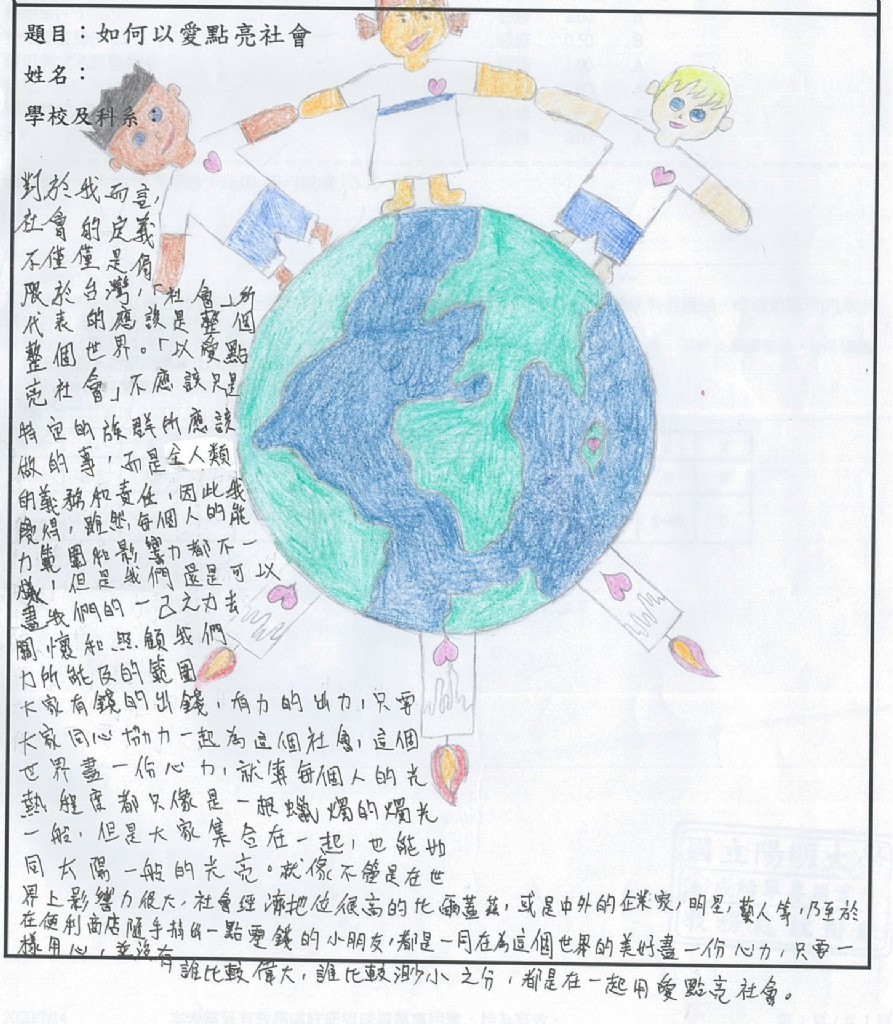 題目：如何以愛點亮社會
姓名：
學校及科系：
對於我而言，
社會的定義
不僅僅是侷
限於台灣，「社會」所
代表的應該是整個
整個世界。「以愛點
亮社會」不應該只是
特定的族群所應該
做的事，而是全人類
的義務和責任，因此我
覺得，雖然每個人的能
力範圍和影響力都不一
樣，但是我們還是可以
盡我們的一己之力去
關懷和照顧我們
力所能及的範圍
大家有錢的出錢，有力的出力，只要
大家同心協力一起為這個社會，這個
世界盡一份心力，就算每個人的光
熱程度都只像是一根蠟燭的燭光
一般，但是大家集合在一起，也能如
同太陽一般的光亮。就像不管是在世
界上影響力很大，社會經濟地位很高的比爾蓋茲，或是中外的企業家，明星，藝人等，乃至於
在便利商店隨手捐出一點零錢的小朋友，都是一同在為這個世界的美好盡一份心力，只要一
樣用心，並沒有
誰比較偉大，誰比較渺小之分，都是在一起用愛點亮社會。
國立陽明大